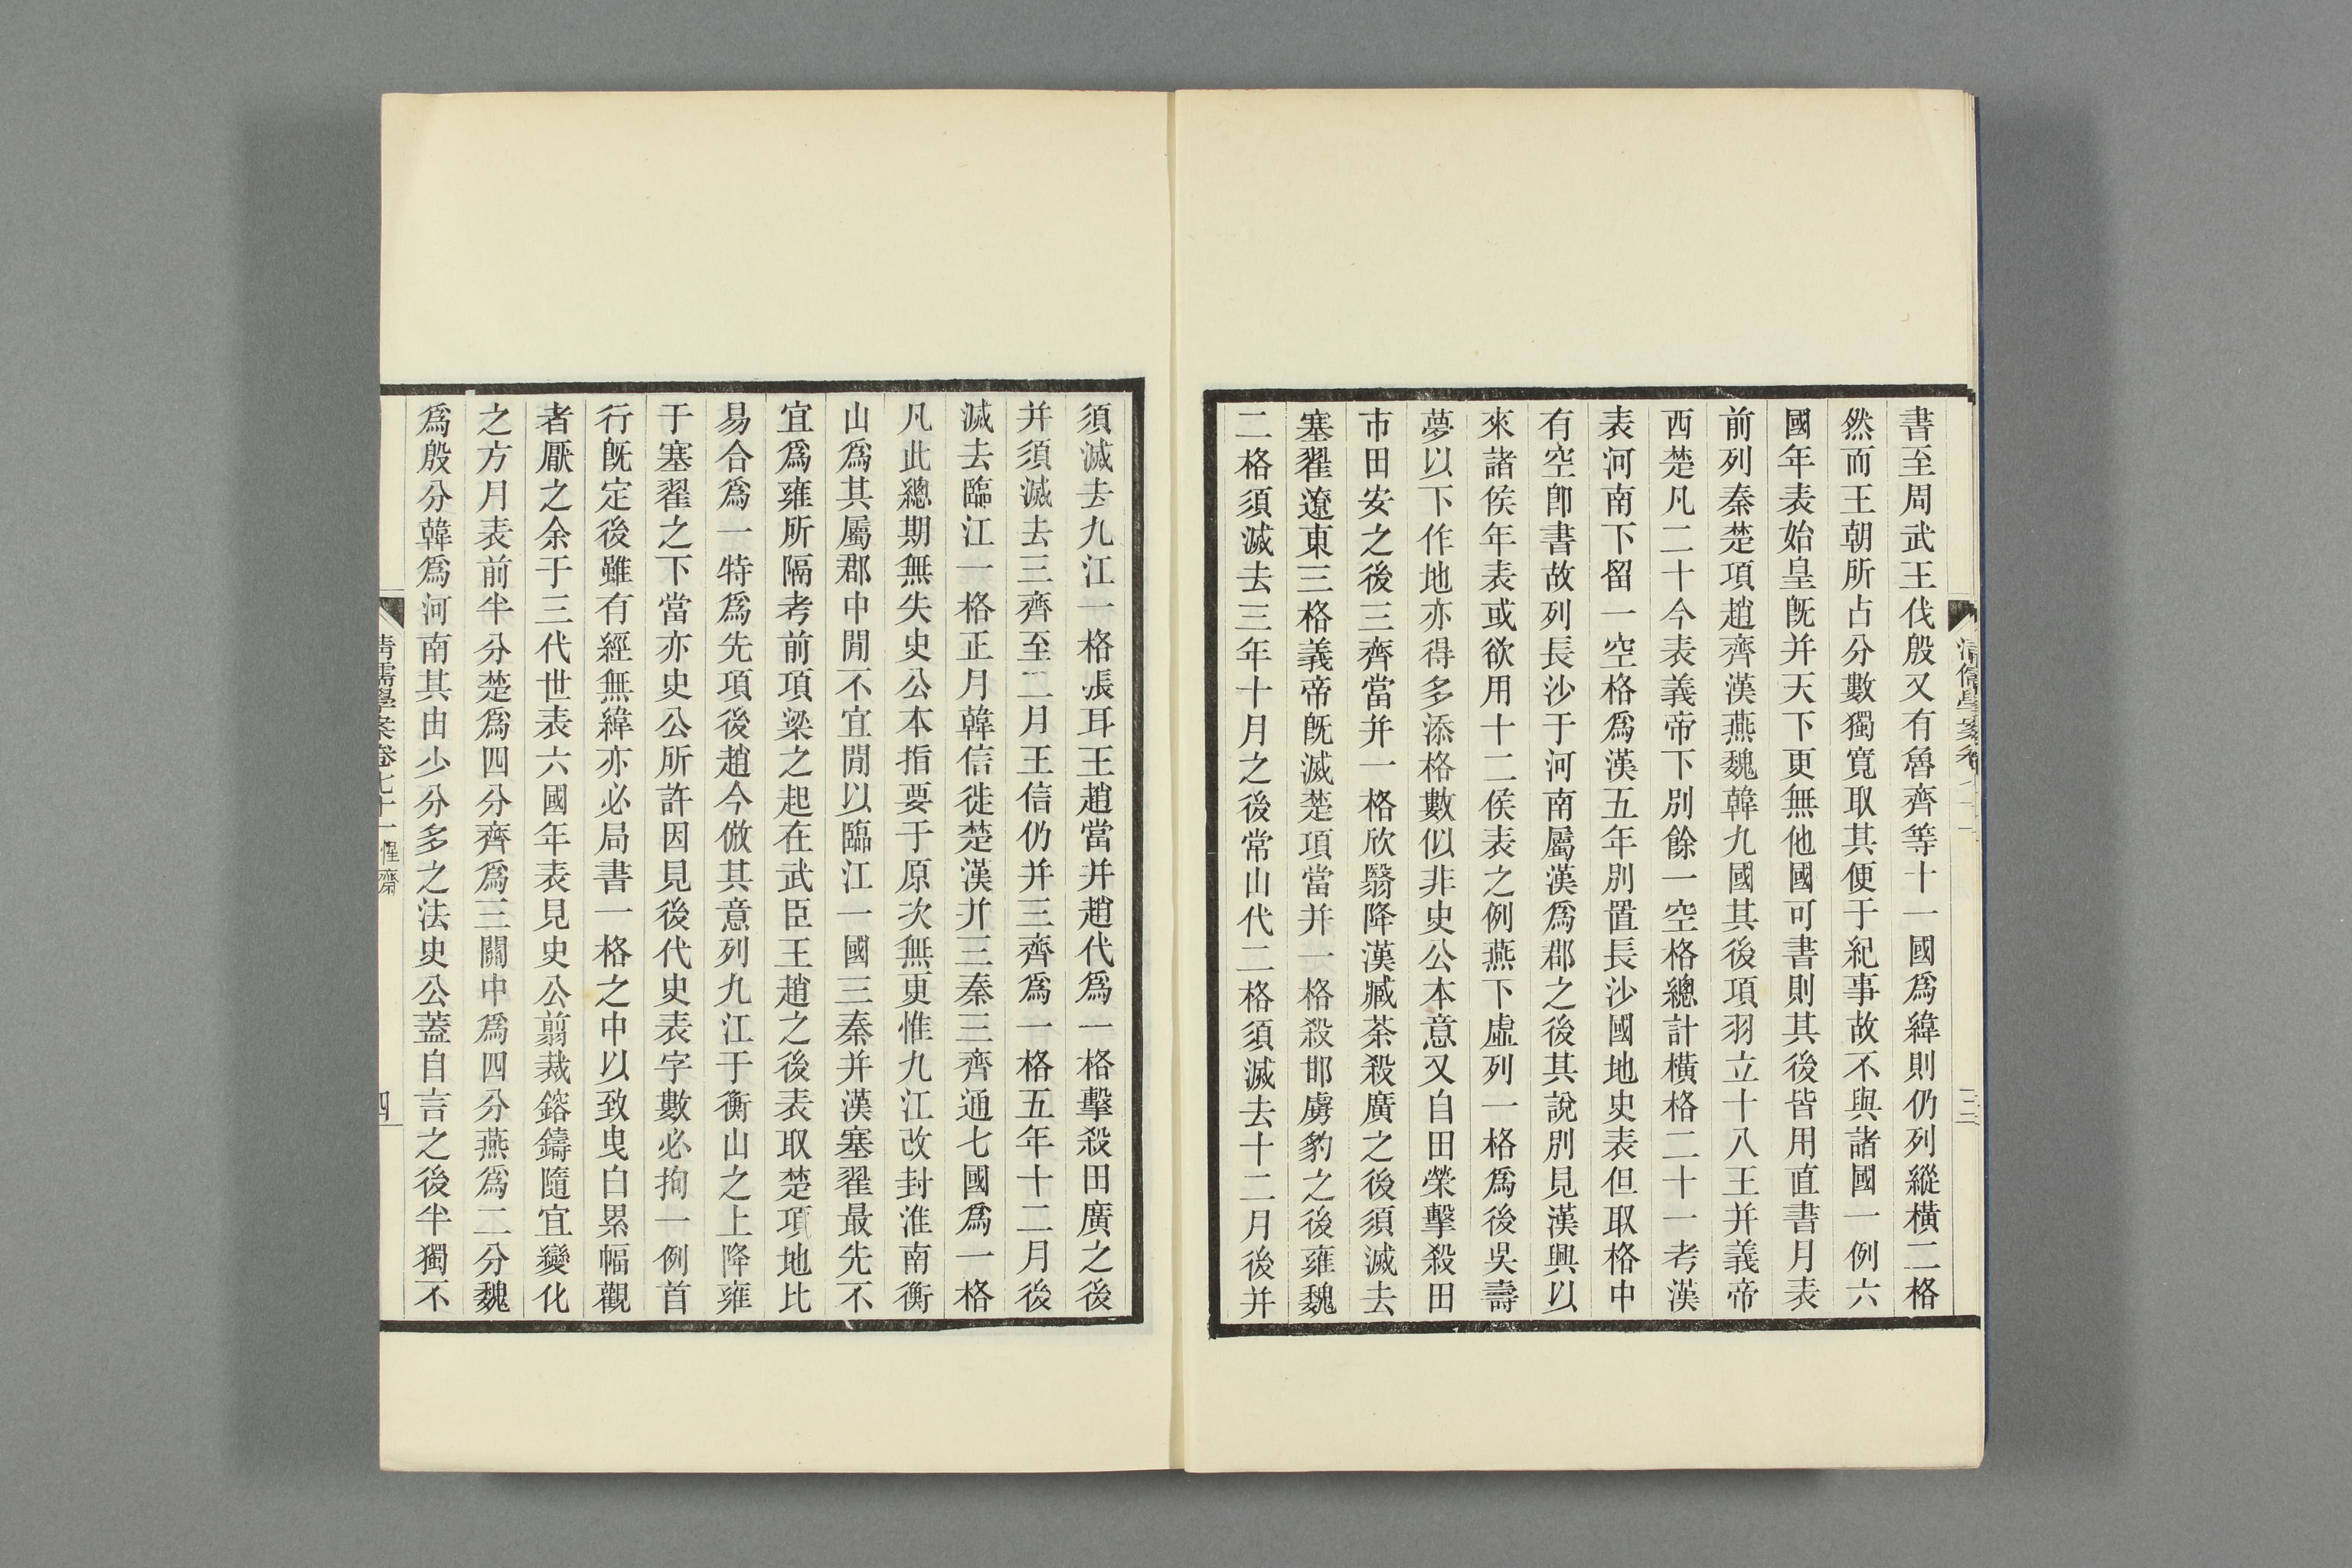 書至周武王伐殷又有魯齊等十一國爲緯則仍列縱橫二格
然而王朝所占分數獨寬取其便于紀事故不與諸國一例六
國年表始皇旣并天下更無他國可書則其後皆用直書月表
前列秦楚項趙齊漢燕魏韓九國其後項羽立十八王并義帝
西楚凡二十今表義帝下別餘一空格總計橫格二十一考漢
表河南下留一空格爲漢五年別置長沙國地史表但取格中
有空卽書故列長沙于河南屬漢爲郡之後其說別見漢興以
來諸侯年表或欲用十二侯表之例燕下虛列一格爲後吳壽
夢以下作地亦得多添格數似非史公本意又自田榮擊殺田
市田安之後三齊當并一格欣翳降漢臧荼殺廣之後須滅去
塞翟遼東三格義帝旣滅楚項當并一格殺邯虜豹之後雍魏
二格須滅去三年十月之後常山代二格須滅去十二月後并
須滅去九江一格張耳王趙當并趙代爲一格擊殺田廣之後
并須滅去三齊至二月王信仍并三齊爲一格五年十二月後
滅去臨江一格正月韓信徙楚漢并三秦三齊通七國爲一格
凡此總期無失史公本指要于原次無更惟九江改封淮南衡
山爲其屬郡中閒不宜閒以臨江一國三秦并漢塞翟最先不
宜爲雍所隔考前項梁之起在武臣王趙之後表取楚項地比
易合爲一特爲先項後趙今倣其意列九江于衡山之上降雍
于塞翟之下當亦史公所許因見後代史表字數必拘一例首
行旣定後雖有經無緯亦必局書一格之中以致曳白累幅觀
者厭之余于三代世表六國年表見史公翦裁鎔鑄隨宜變化
之方月表前半分楚爲四分齊爲三關中爲四分燕爲二分魏
爲殷分韓爲河南其由少分多之法史公蓋自言之後半獨不
清儒學案卷七十一 惺齋
四